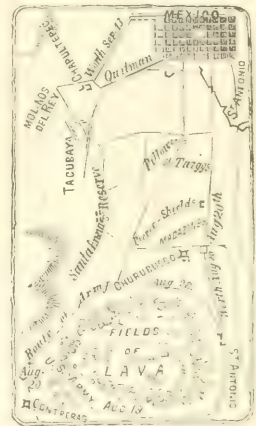 MEXICO
CHAPULTEPEC
Worth Sep. 13
Quitman
S. ANTONIO
MOLINOS
DEL REY
TACUBAYA
Pillow
Twiggs
Santa Anna's Reserve
Pierce Shields
CHURUBUSCO
Worth Aug 20th
Aug. 20
Route of Army
FIELDS
OF
LAVA
Aug.
U.S. ARMY AUG 19
CONTRERAS
ST ANTONIO